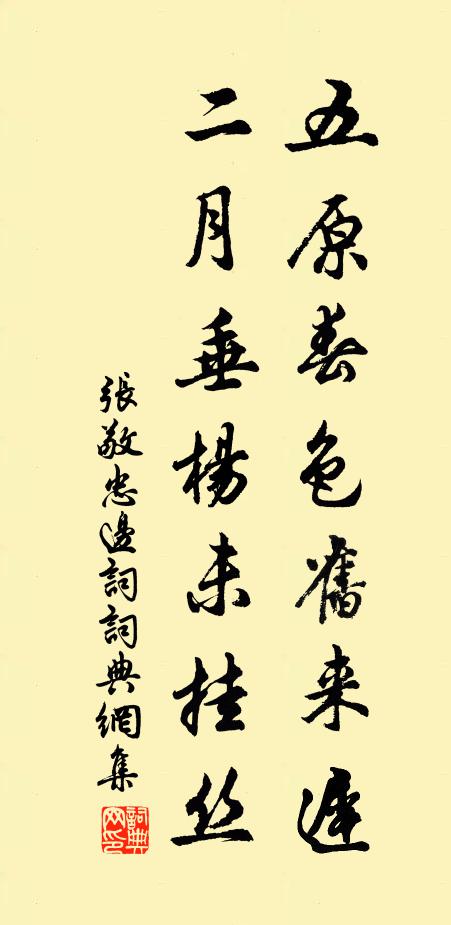 五原春色舊来遲
二月垂楊未挂丝
張敬忠邊詞詞典網集
詞典
网印